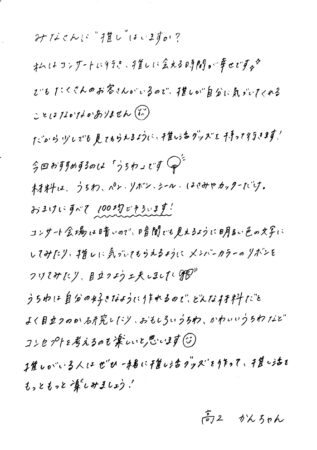 みなさんに"推し"はいますか？
私はコンサートに行き、推しに会える時間が幸せです
でもたくさんのお客さんがいるので、推しが自分に気づいてくれる
ことはなかなかありません
だから少しでも見てもらえるように、推し活グッズを持って行きます！
今回おすすめするのは「うちわ」です
材料は、うちわ、ペン、リボン、シール、はさみやカッターだけ。
おまけにすべて100均でそろいます！
コンサート会場は暗いので、暗闇でも見えるように明るい色の文字に
してみたり、推しに気づいてもらえるようにメンバーカラーのリボンを
つけてみたり、目立つよう工夫しました
うちわは自分の好きなように作れるので、どんな材料だと
よく目立つのか研究したり、おもしろいうちわ、かわいいうちわなど
コンセプトを考えるのも楽しいと思います
推しがいる人はぜひ一緒に推し活グッズを作って、推し活を
もっともっと楽しみましょう！
高2 かんちゃん